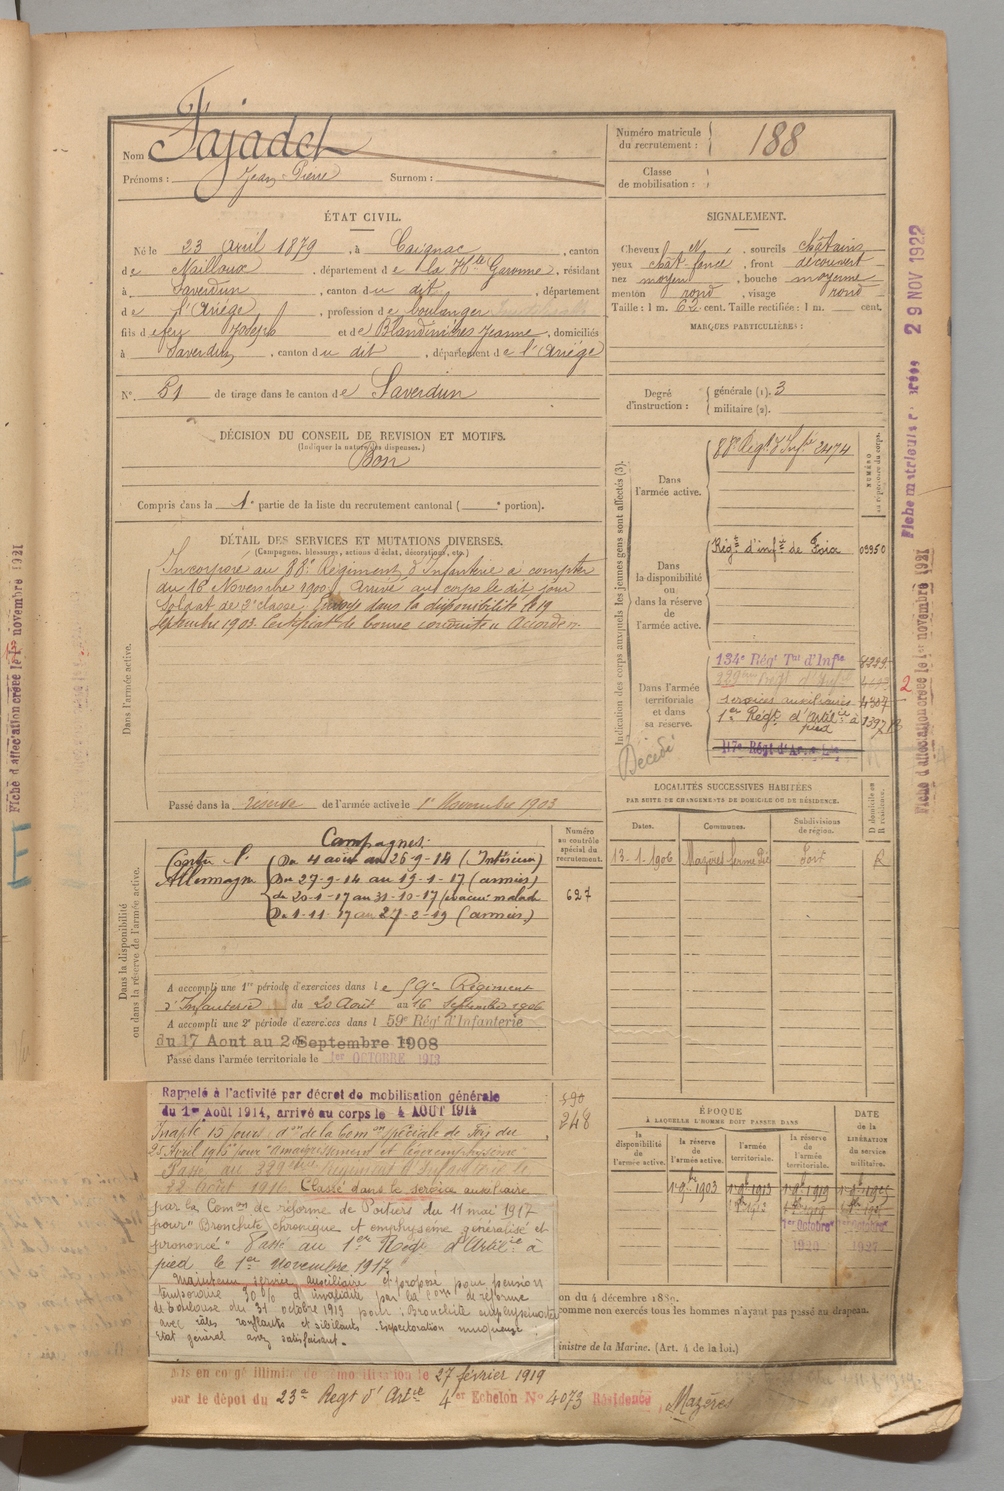 Nom Fajadet
Prénoms : Jean Pierre Surnom :
Numéro matricule du recrutement : 188
Classe de mobilisation :
ÉTAT CIVIL.
Né le 23 Avril 1879, à Caignac, canton
de Nailloux, département de la Hte Garonne, résidant
à Saverdun, canton du dit, département
de l'Ariège, profession de boulanger
fils de feu Joseph et de Blandinières Jeanne, domiciliés
à Saverdun, canton du dit, département de l'Ariège
N° 51 de tirage dans le canton de Saverdun
SIGNALEMENT.
Cheveux N, sourcils châtains
yeux chât. foncé, front découvert
nez moyen, bouche moyenne
menton rond, visage rond
Taille : 1 m. 62 cent. Taille rectifiée : 1 m. cent.
MARQUES PARTICULIÈRES :
Degré d'instruction : générale (1). 3
militaire (2).
DÉCISION DU CONSEIL DE REVISION ET MOTIFS.
(Indiquer la nature des dispenses.)
Bon
Compris dans la 1e partie de la liste du recrutement cantonal ( e portion).
DÉTAIL DES SERVICES ET MUTATIONS DIVERSES.
(Campagnes, blessures, actions d'éclat, décorations, etc.)
Dans l'armée active.
Incorporé au 88e Régiment d'Infanterie à compter
du 16 Novembre 1900. Arrivé au corps le dit jour
Soldat de 2e classe. Envoyé dans la disponibilité le 19
Septembre 1903. Certificat de bonne conduite "Accordé".
Passé dans la réserve de l'armée active le 1er Novembre 1903
Indication des corps auxquels les jeunes gens sont affectés (3).
NUMÉRO au répertoire du corps.
Dans l'armée active.
88e Régt d'Infie 2474
Dans la disponibilité ou dans la réserve de l'armée active.
Régt d'infie de Foix 03950
Dans l'armée territoriale et dans sa réserve.
134e Régt Tal d'Infie
services auxiliaires
1er Régt d'Artie à pied
117e Régt d'A
Décédé
2
LOCALITÉS SUCCESSIVES HABITÉES
PAR SUITE DE CHANGEMENTS DE DOMICILE OU DE RÉSIDENCE.
Dates. Communes. Subdivisions de région. D domicile ou R résidence.
13-1-1906 Mazères Foix R
Dans la disponibilité ou dans la réserve de l'armée active.
Numéro au contrôle spécial du recrutement.
627
Campagnes :
Contre l'Allemagne
Du 4 août au 26-9-14 (Intérieur)
Du 27-9-14 au 19-1-17 (armées)
du 20-1-17 au 31-10-17 (évacué malade
Du 1-11-17 au 27-2-19 (armées)
A accompli une 1re période d'exercices dans le 59e Régiment
d'Infanterie du 20 Août au 16 Septembre 1906
A accompli une 2e période d'exercices dans l 59e Régt d'Infanterie
du 17 Aout au 2 Septembre 1908
Passé dans l'armée territoriale le 1er OCTOBRE 1913
Rappelé à l'activité par décret de mobilisation générale
du 1er Août 1914, arrivé au corps le 4 AOUT 1914
590
248
Inapte 15 jours don de la Comon spéciale de Foix du
25 Avril 1915 pour "amaigrissement et léger emphysème"
Passé au 329ème Régiment d'Infanterie le
22 Août 1916. Classé dans le service auxiliaire
par la Comon de réforme de Poitiers du 11 mai 1917
pour "Bronchite chronique et emphysème généralisé et
prononcé" Passé au 1er Régt d'Artie à
pied le 1er Novembre 1917.
Maintenu service auxiliaire et proposé pour pension
temporaire 30% d'invalidité par la Comon de réforme
de Toulouse du 31 octobre 1919 pour : Bronchite emphysémateuse
avec râles ronflants et sibilants. Expectoration muqueuse.
Etat général assez satisfaisant.
ÉPOQUE
À LAQUELLE L'HOMME DOIT PASSER DANS
la disponibilité de l'armée active. la réserve de l'armée active. l'armée territoriale. la réserve de l'armée territoriale.
DATE DE LA LIBÉRATION du service militaire.
1er 9bre 1903
1er Octobre 1920
1er Octobre 1927
on du 4 décembre 1889.
comme non exercés tous les hommes n'ayant pas passé au drapeau.
inistre de la Marine. (Art. 4 de la loi.)
Mis en congé illimité de démobilisation le 27 février 1919
par le dépot du 23e Regt d'Artie 4er Echelon No 4073 Résidence Mazères
29 NOV 1922
Fiche d'affectation créée le 1er novembre 1921
Fiche d'affectation créée le 1er novembre 1921